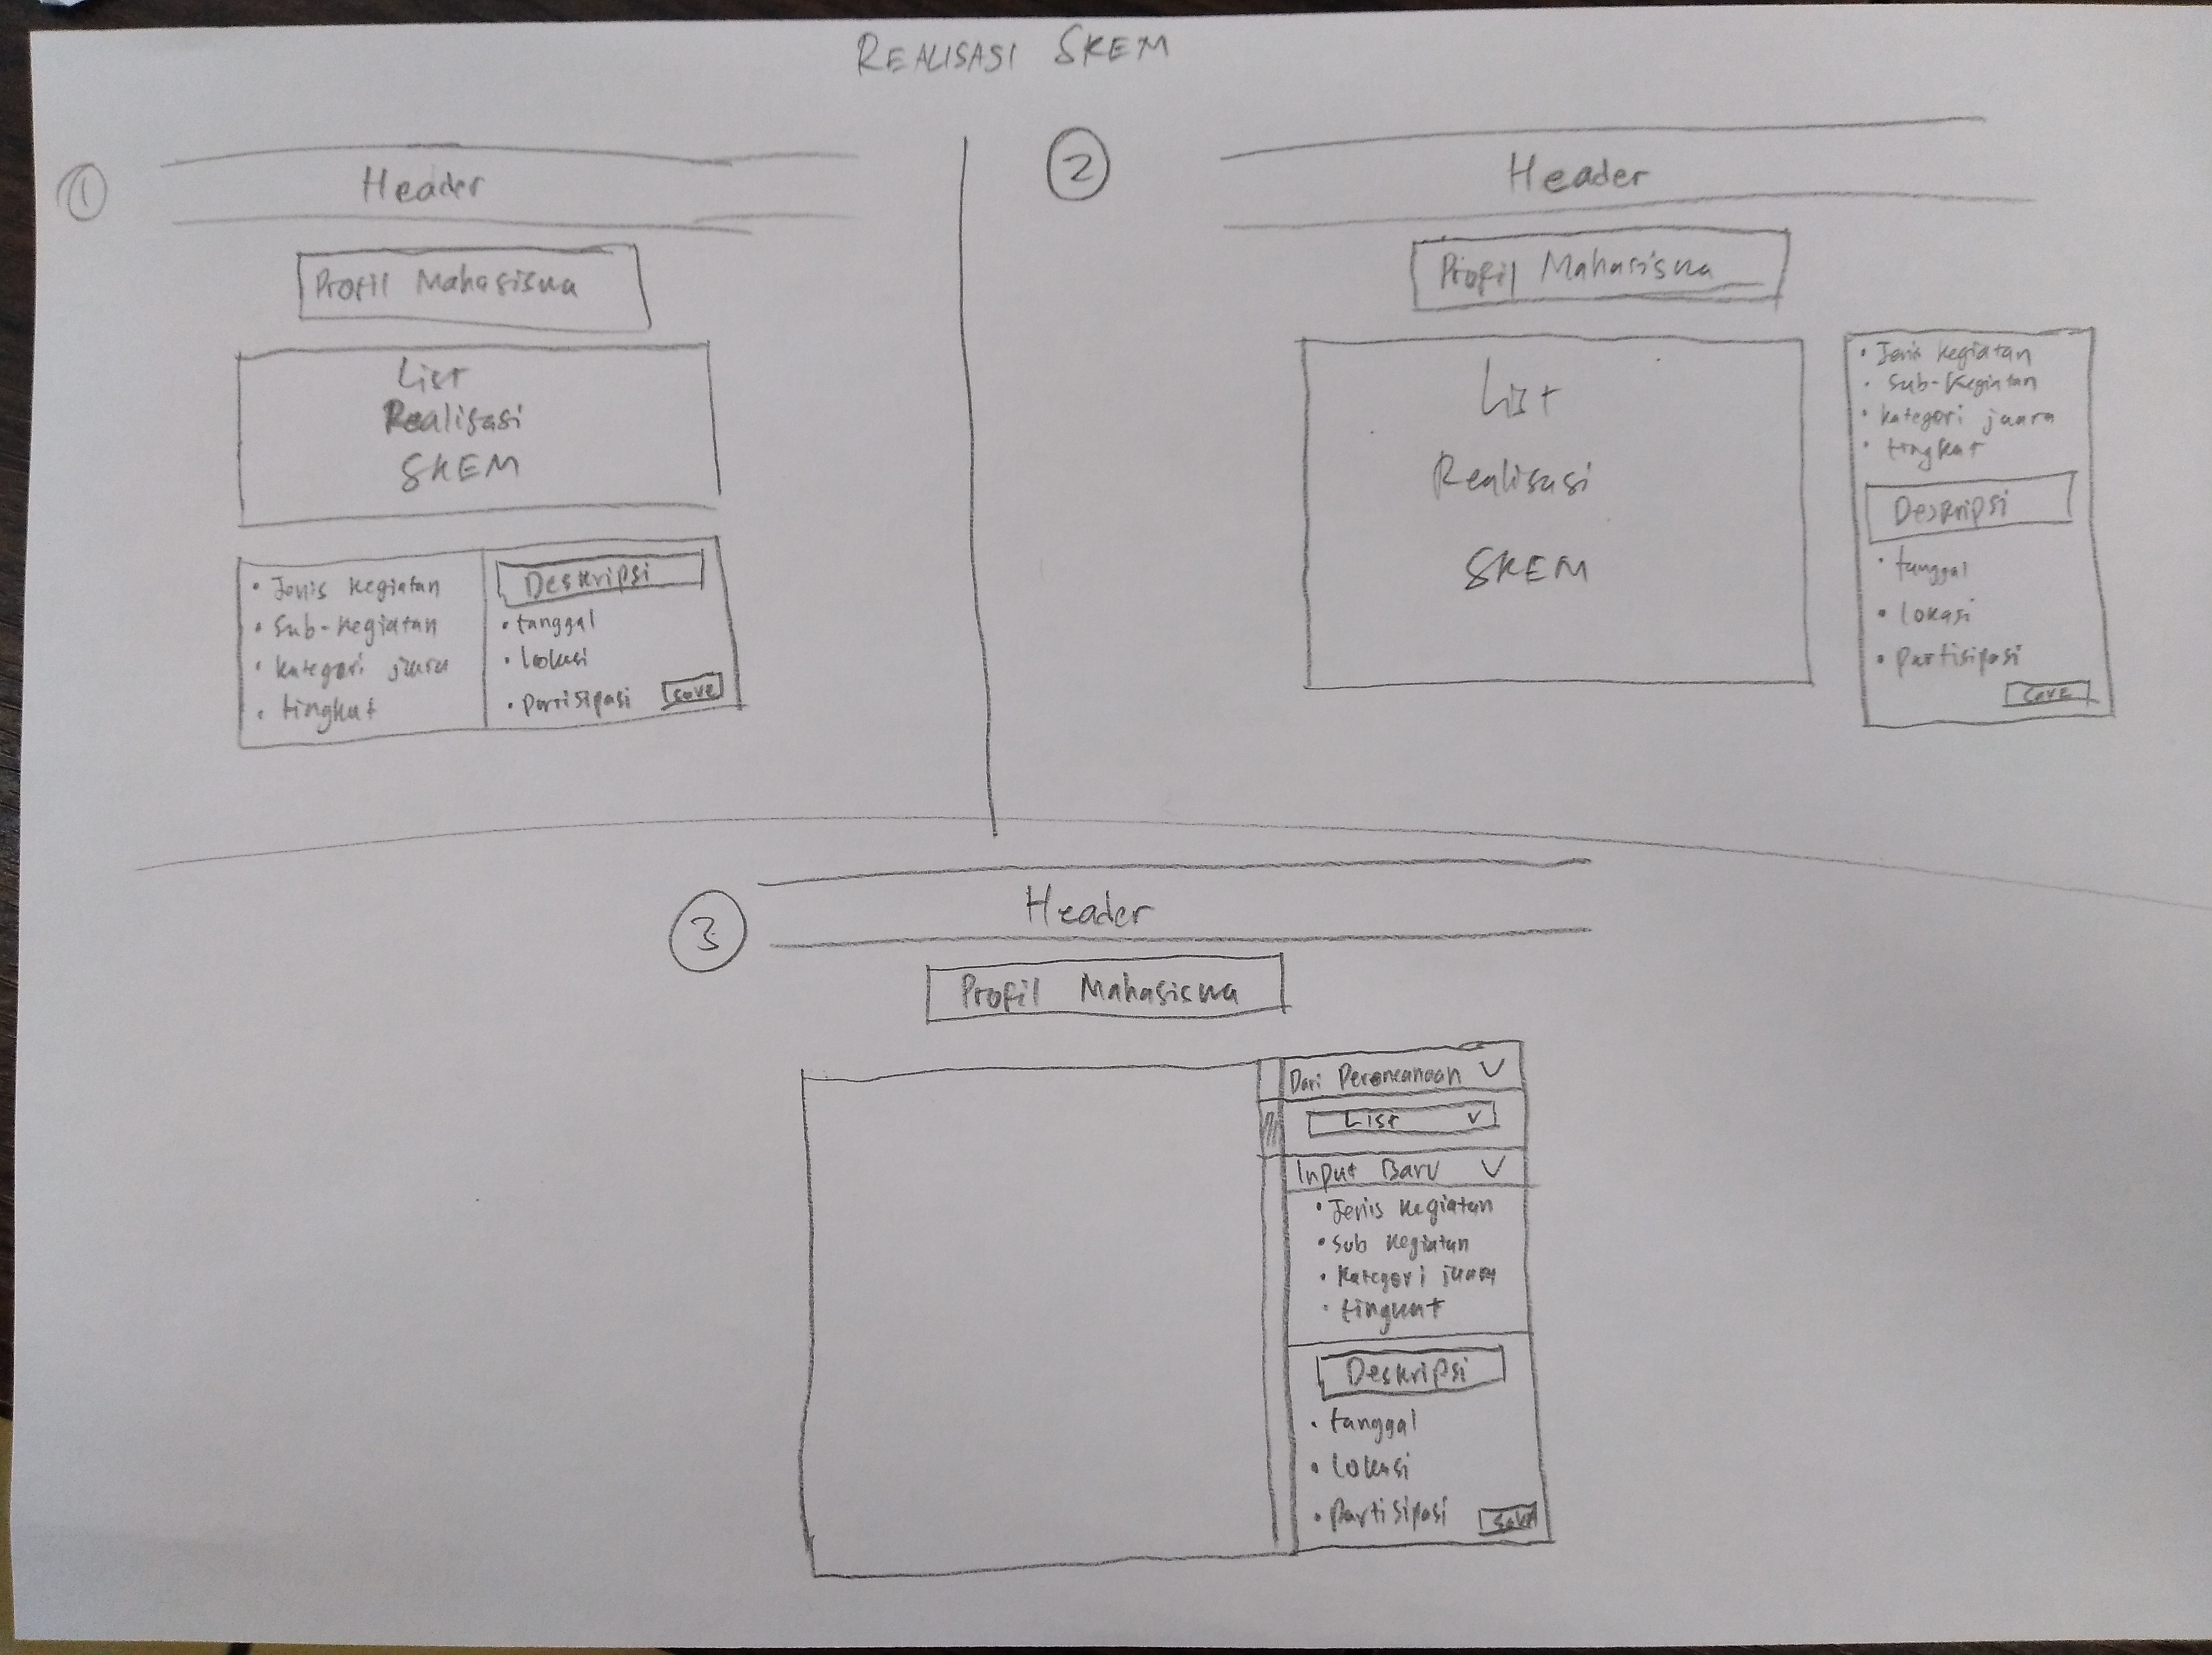 REALISASI SKEM
1
Header
Profil Mahasiswa
List
Realisasi
SKEM
• Jenis kegiatan
• Sub-kegiatan
• kategori juara
• tingkat
Deskripsi
• tanggal
• lookasi
• Partisipasi
save
2
Header
Profil Mahasiswa
List
Realisasi
SKEM
• Jenis kegiatan
• Sub-Kegiatan
• kategori juara
• tingkat
Deskripsi
• tanggal
• lokasi
• partisipasi
save
3
Header
Profil Mahasiswa
Dari Perencanaan V
List V
Input Baru V
• Jenis kegiatan
• Sub kegiatan
• kategori juara
• tingkat
Deskripsi
• tanggal
• lokasi
• partisipasi
save